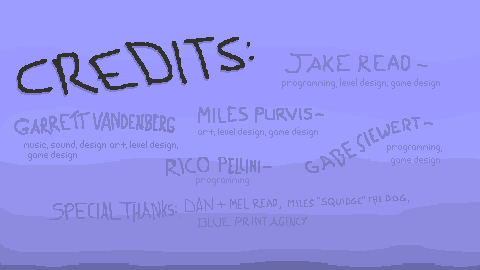 CREDITS:
JAKE READ ~
programming, level design, game design
GARRETT VANDENBERG
music, sound, design art, level design,
game design
MILES PURVIS~
art, level design, game design
GABE SIEWERT~
programming,
game design
RICO PELLINI~
programming
SPECIAL THANKS: DAN + MEL READ, MILES "SQUIDGE" THE DOG,
BLUE PRINT AGENCY